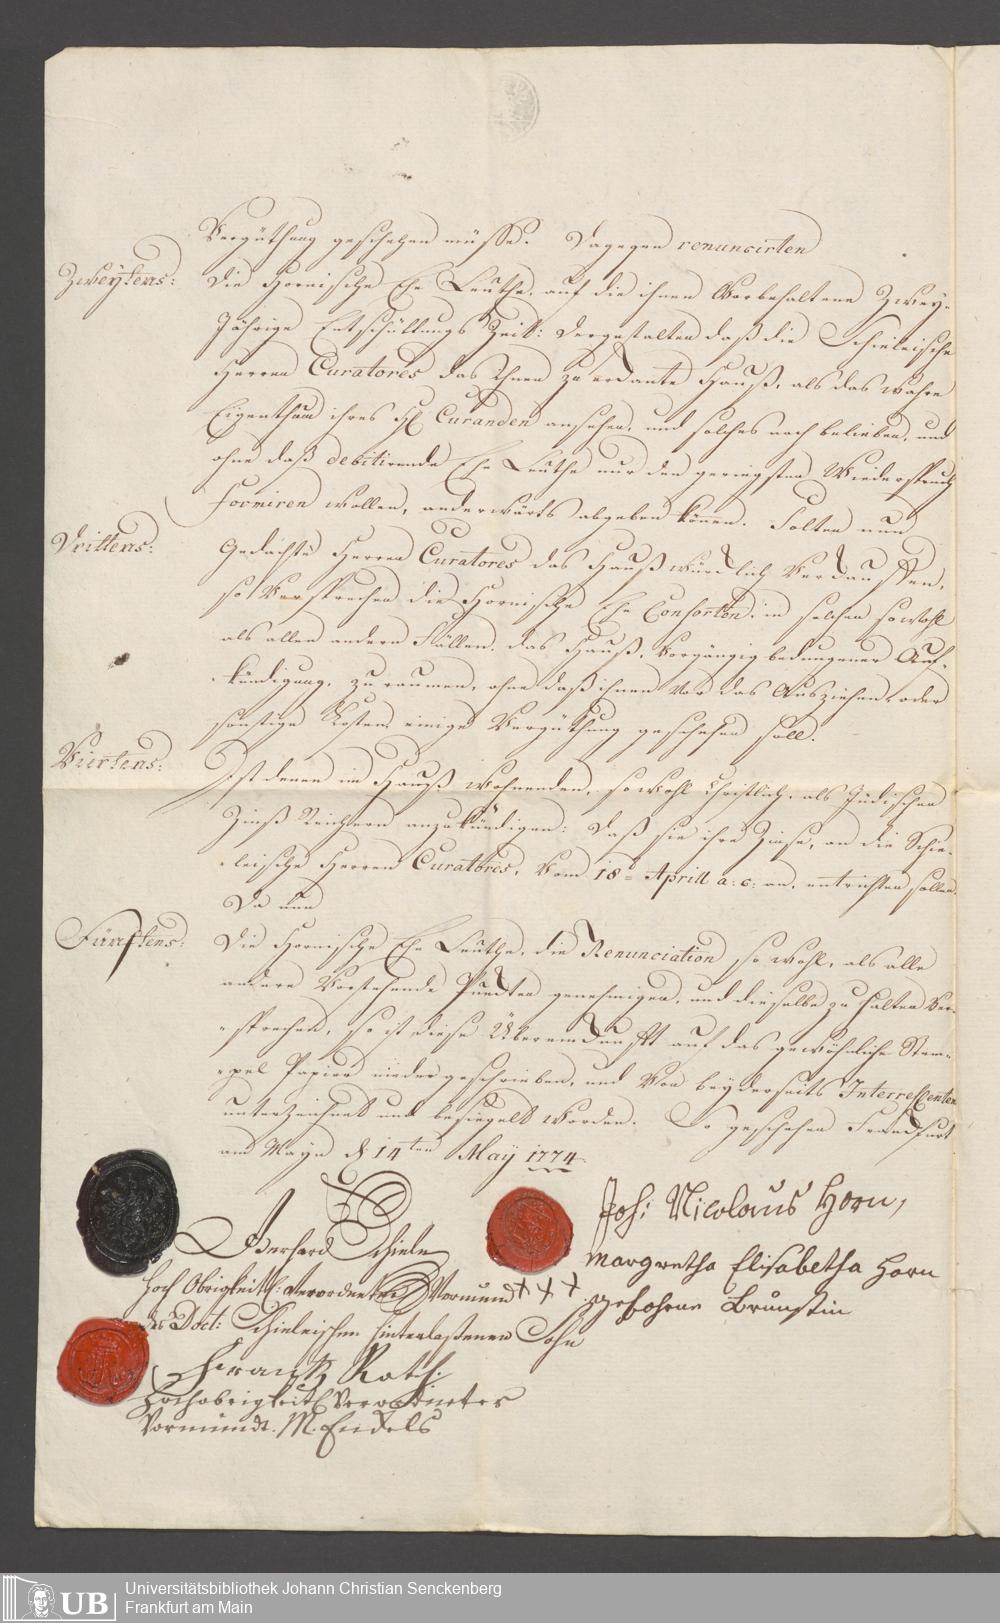 Vergüthung geschehen müsse. Dagegen renuncirten
Zweytens: die Hornische Ehe Leuthe, auf die ihnen Vorbehaltene Zwey-
Jährige Entschüttungs Zeit: dergestalten daß die Schieleische
Herren Curatores das Ihnen zu erkante Hauß, als das wahre
Eigenthum ihres Curanden ansehen, und solches nach belieben, und
ohne daß debitirende Ehe Leuthe nur den geringsten Wiederspruch
formiren wollen, anderwärts abgeben können. Solten nun
Drittens: Gedachte Herren Curatores das Hauß würcklich Verkauffen,
so Versprechen die Hornische Ehe Consorten, in solchen sowohl
als allen andern Fällen, das Hauß, Vorgängig bedungener Auf-
kündigung, zu raumen, ohne daß ihnen Vor das Ausziehen, oder
sonstige Kosten einige Vergüthung geschehen soll.
Viertens: Ist denen im Hauß wohnenden, so wohl Christlich, als Jüdischen
Zinß Reichern anzukündigen: daß sie ihre Zinse, an die Schie-
leische Herren Curatores, Vom 18ⁿ Aprill a: c: an, entrichten sollen.
Da nun
Fünftens: Die Hornische Ehe Leuthe, die Renunciation so wohl, als alle
andere Vorstehende Puncten genehmigen, und dieselbe zu halten Ver-
sprechen, so ist diese Übereinkunfft auf das gewöhnliche Stem-
pel Papier niedergeschrieben, und Von beyderseits Interressenten
unterzeichnet und besiegelt worden. So geschehen Franckfurt
am Mayn d 14ten May 1774.
Joh: Nicolaus Horn,
Margretha Elisabetha Horn
+++ gebohrne Brunstin
Gerhard Schiele
Hoch Obrigkeitl: Verordneter Vormund
des Doct: Schieleischen hinterlaßenen Sohn
Frantz Roth:
Hochobrigkeitl Verordneter
Vormundt. M. Endels
Universitätsbibliothek Johann Christian Senckenberg
Frankfurt am Main
UB